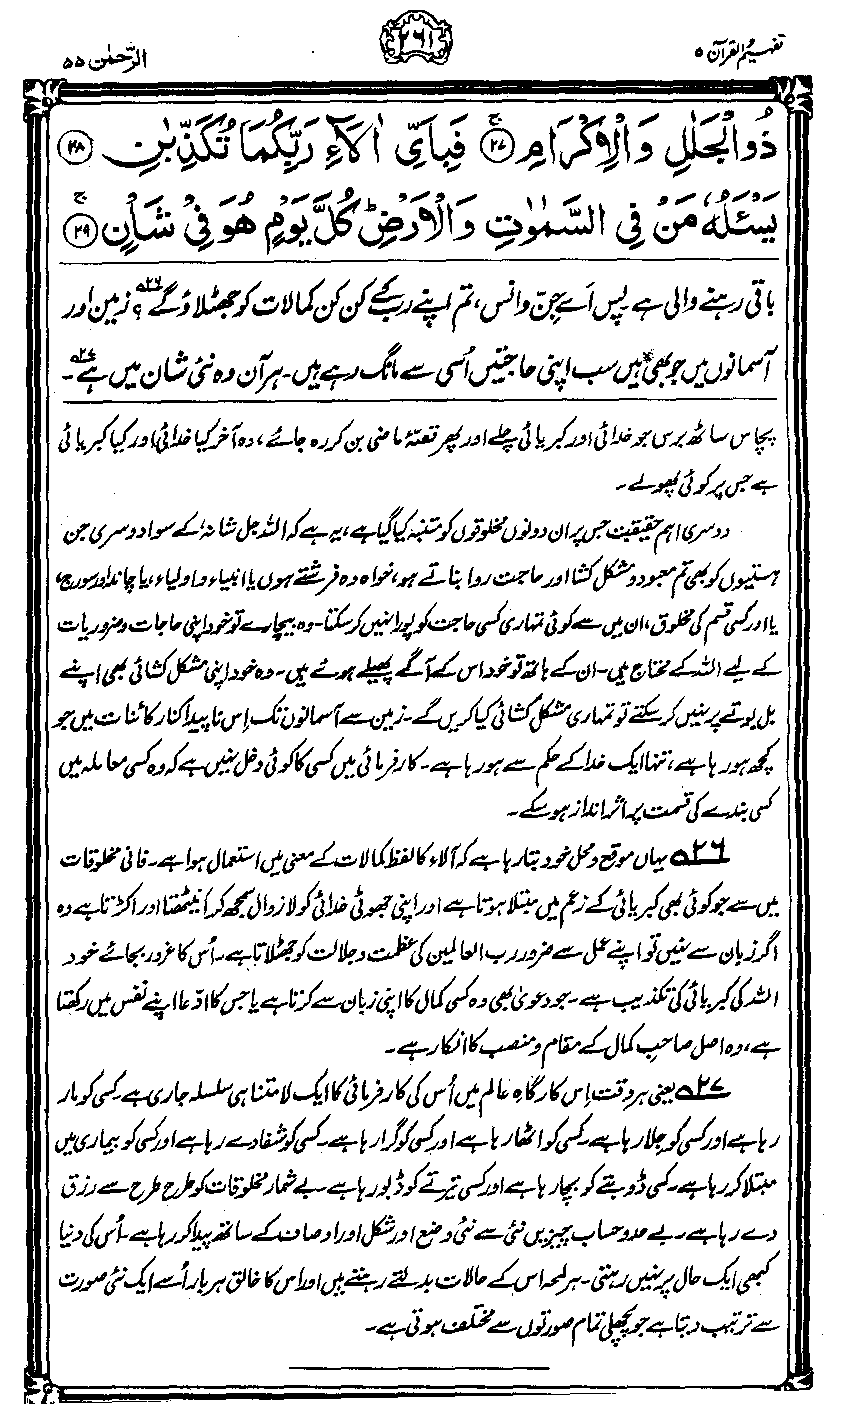 تفہیم القرآن ۵
۲۶۱
الرّحمٰن ۵۵
ذُو الْجَلٰلِ وَالْاِكْرَامِ ﴿۲۷﴾ۚ فَبِاَىِّ اٰلَآءِ رَبِّكُمَا تُكَذِّبٰنِ ﴿۲۸﴾
يَسْـَٔلُهٗ مَنْ فِى السَّمٰوٰتِ وَالْاَرْضِؕ كُلَّ يَوْمٍ هُوَ فِىْ شَاْنٍ ﴿۲۹﴾ۚ
باقی رہنے والی ہے پس اَے جِنّ و انس، تم اپنے رب کے کن کن کمالات کو جھٹلاؤ گے؟ ۲۶؎ زمین اور
آسمانوں میں جو بھی ہیں سب اپنی حاجتیں اُسی سے مانگ رہے ہیں۔ ہر آن وہ نئی شان میں ہے ۲۷؎۔
پچاس ساٹھ برس جو خدائی اور کبریائی چلے اور پھر قصّۂ ماضی بن کر رہ جائے، وہ آخر کیا خدائی اور کیا کبریائی
ہے جس پر کوئی پھولے۔
دوسری اہم حقیقت جس پر ان دونوں مخلوقوں کو متنبہ کیا گیا ہے، یہ ہے کہ اللہ جل شانہٗ کے سوا دوسری جن
ہستیوں کو بھی تم معبود و مشکل کشا اور حاجت روا بناتے ہو، خواہ وہ فرشتے ہوں یا انبیاء و اولیاء، یا چاند اور سورج،
یا اور کسی قسم کی مخلوق، ان میں سے کوئی تمہاری کسی حاجت کو پورا نہیں کر سکتا۔ وہ بیچارے تو خود اپنی حاجات و ضروریات
کے لیے اللہ کے محتاج ہیں۔ ان کے ہاتھ تو خود اس کے آگے پھیلے ہوئے ہیں۔ وہ خود اپنی مشکل کشائی بھی اپنے
بل بوتے پر نہیں کر سکتے تو تمہاری مشکل کشائی کیا کریں گے۔ زمین سے آسمانوں تک اِس ناپیدا کنار کائنات میں جو
کچھ ہو رہا ہے، تنہا ایک خدا کے حکم سے ہو رہا ہے۔ کار فرمائی میں کسی کا کوئی دخل نہیں ہے کہ وہ کسی معاملہ میں
کسی بندے کی قسمت پر اثر انداز ہو سکے۔
۲۶؎ یہاں موقع و محل خود بتا رہا ہے کہ آلاء کا لفظ کمالات کے معنی میں استعمال ہوا ہے۔ فانی مخلوقات
میں سے جو کوئی بھی کبریائی کے زعم میں مبتلا ہوتا ہے اور اپنی جھوٹی خدائی کو لازوال سمجھ کر اینٹھتا اور اکڑتا ہے وہ
اگر زبان سے نہیں تو اپنے عمل سے ضرور رب العالمین کی عظمت و جلالت کو جھٹلاتا ہے۔ اُس کا غرور بجائے خود
اللہ کی کبریائی کی تکذیب ہے۔ جو دعویٰ بھی وہ کسی کمال کا اپنی زبان سے کرتا ہے یا جس کا ادّعا اپنے نفس میں رکھتا
ہے، وہ اصل صاحبِ کمال کے مقام و منصب کا انکار ہے۔
۲۷؎ یعنی ہر وقت اِس کارگاہِ عالم میں اُس کی کار فرمائی کا ایک لامتناہی سلسلہ جاری ہے۔ کسی کو مار
رہا ہے اور کسی کو جِلا رہا ہے۔ کسی کو اٹھا رہا ہے اور کسی کو گرا رہا ہے۔ کسی کو شفا دے رہا ہے اور کسی کو بیماری میں
مبتلا کر رہا ہے۔ کسی ڈوبتے کو بچا رہا ہے اور کسی تیرتے کو ڈبو رہا ہے۔ بے شمار مخلوقات کو طرح طرح سے رزق
دے رہا ہے۔ بے حد و حساب چیزیں نئی سے نئی وضع اور شکل اور اوصاف کے ساتھ پیدا کر رہا ہے۔ اُس کی دنیا
کبھی ایک حال پر نہیں رہتی۔ ہر لمحہ اس کے حالات بدلتے رہتے ہیں اور اس کا خالق ہر بار اُسے ایک نئی صورت
سے ترتیب دیتا ہے جو پچھلی تمام صورتوں سے مختلف ہوتی ہے۔